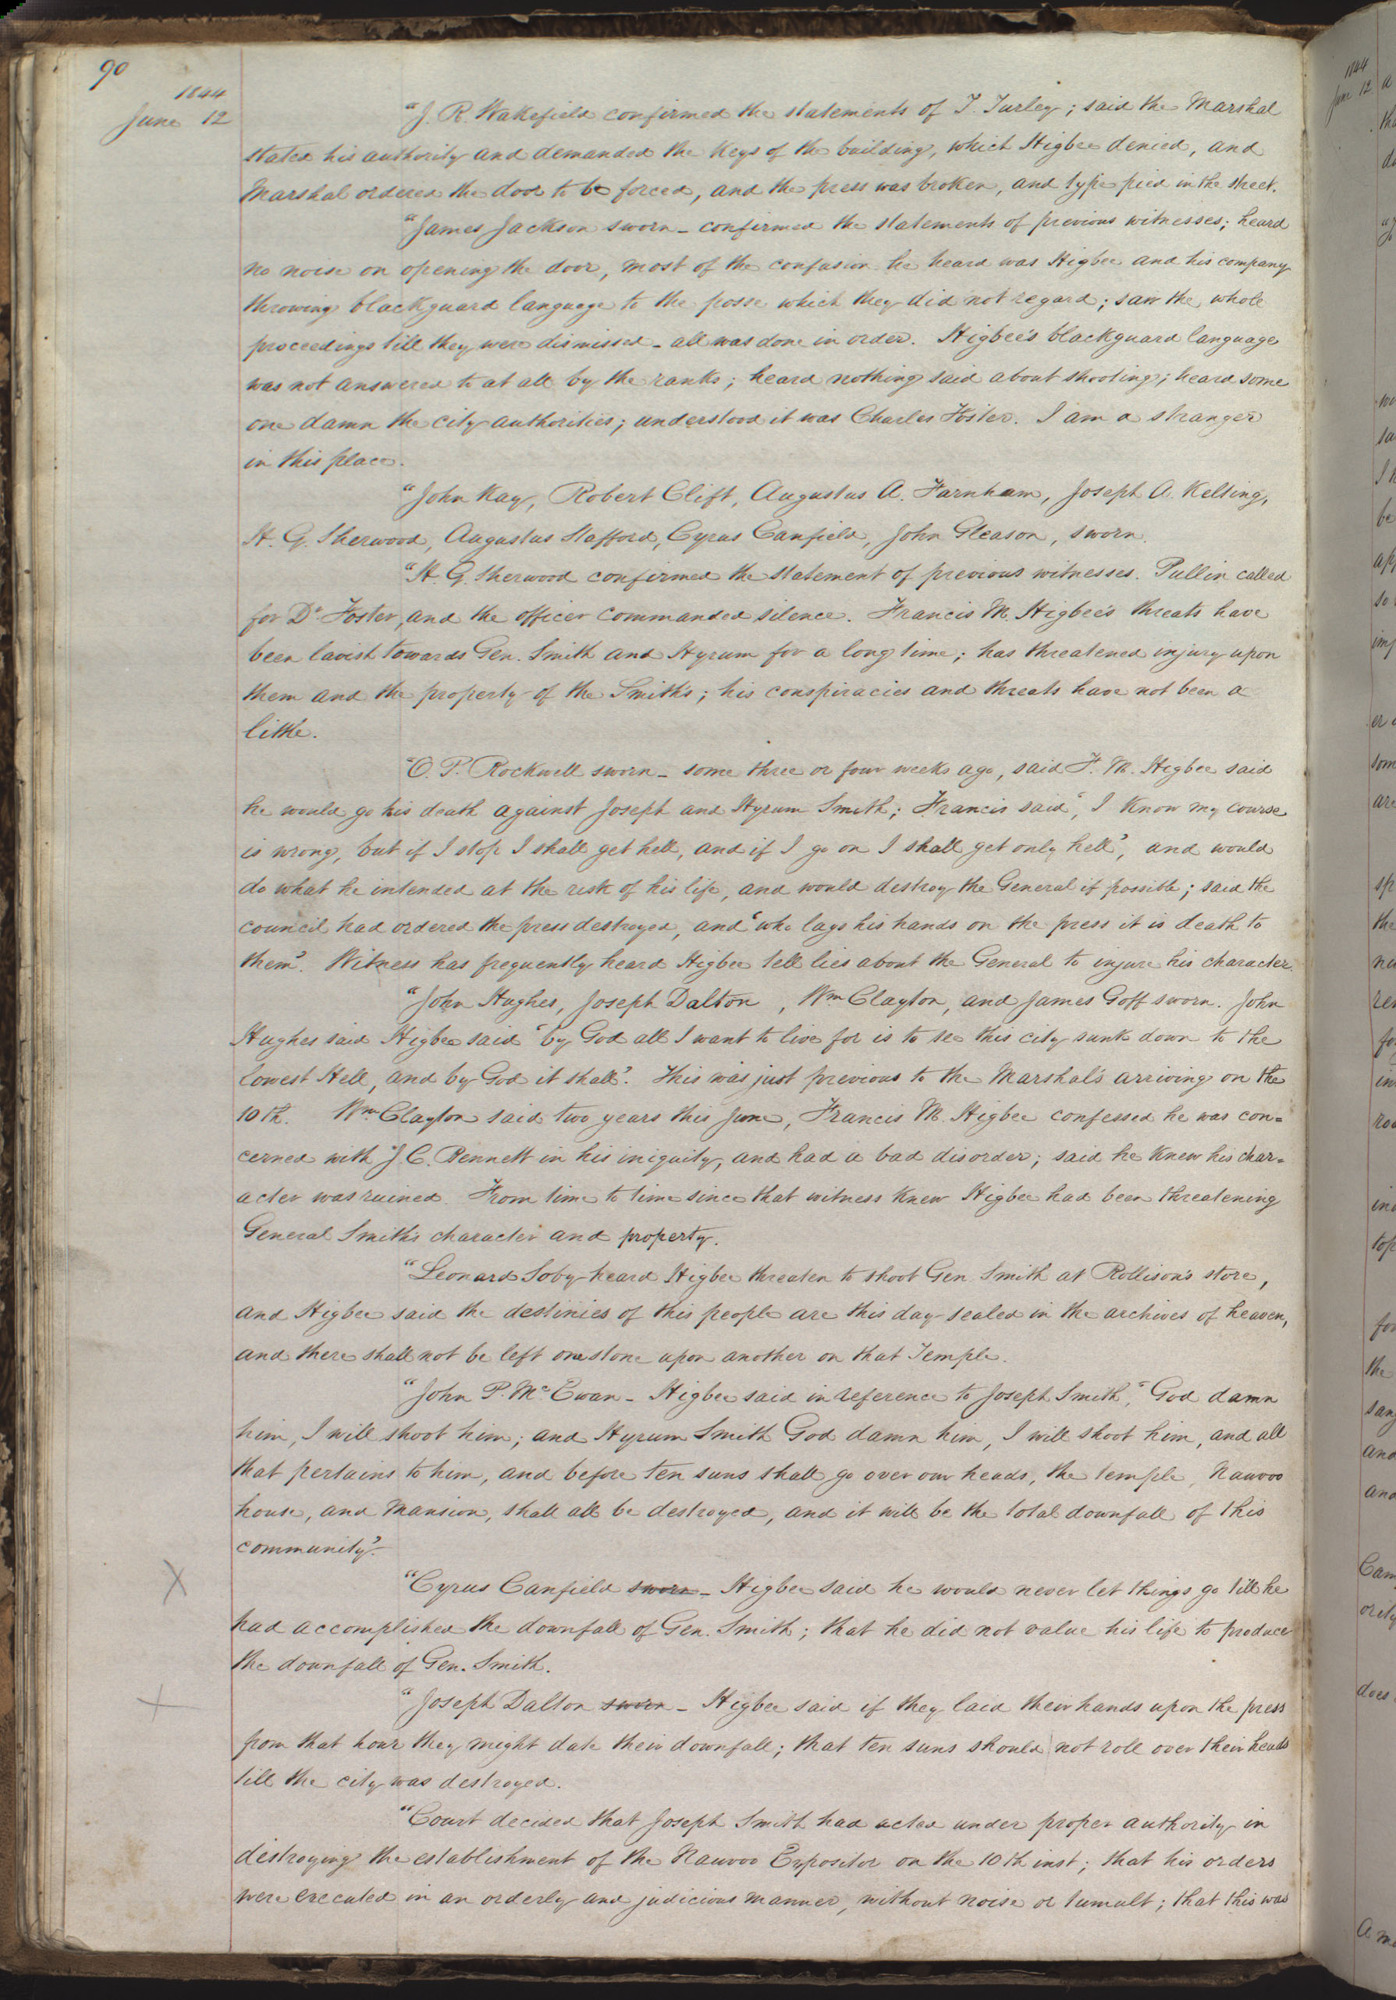 90
1844
June 12
"J. R. Wakefield confirmed the statements of T. Turley; said the Marshal
stated his authority and demanded the keys of the building, which Higbee denied, and
Marshal ordered the door to be forced, and the press was broken, and type pied in the street.
"James Jackson sworn – confirmed the statements of previous witnesses; heard
no noise on opening the door, most of the confusion he heard was Higbee and his company
throwing blackguard language to the posse which they did not regard; saw the whole
proceedings till they were dismissed – all was done in order. Higbee's blackguard language
was not answered to at all by the ranks; heard nothing said about shooting; heard some
one damn the city authorities; understood it was Charles Foster. I am a stranger
in this place.
"John Kay, Robert Clift, Augustus A. Farnham, Joseph A. Kelting,
H. G. Sherwood, Augustus Stafford, Cyrus Canfield, John Gleason, sworn.
"H. G. Sherwood confirmed the statement of previous witnesses. Pullin called
for Dr. Foster, and the officer commanded silence. Francis M. Higbee's threats have
been lavish towards Gen. Smith and Hyrum for a long time; has threatened injury upon
them and the property of the Smith's; his conspiracies and threats have not been a
little.
"O. P. Rockwell sworn – some three or four weeks ago, said F. M. Higbee said
he would go his death against Joseph and Hyrum Smith; Francis said, 'I know my course
is wrong, but if I stop I shall get hell, and if I go on I shall get only hell', and would
do what he intended at the risk of his life, and would destroy the General if possible; said the
council had ordered the press destroyed, and 'who lays his hands on the press it is death to
them'. Witness has frequently heard Higbee tell lies about the General to injure his character.
"John Hughes, Joseph Dalton , Wm Clayton, and James Goff sworn. John
Hughes said Higbee said 'by God all I want to live for is to see this city sunk down to the
lowest Hell, and by God it shall'. This was just previous to the Marshal's arriving on the
10th. Wm Clayton said two years this June, Francis M. Higbee confessed he was con=
cerned with J. C. Bennett in his iniquity, and had a bad disorder; said he knew his char=
acter was ruined. From time to time since that witness knew Higbee had been threatening
General Smith's character and property.
"Leonard Soby heard Higbee threaten to shoot Gen. Smith at Rollison's store,
and Higbee said the destinies of this people are this day sealed in the archives of heaven,
and there shall not be left one stone upon another on that Temple.
"John P. McEwan – Higbee said in reference to Joseph Smith, 'God damn
him, I will shoot him; and Hyrum Smith God damn him, I will shoot him, and all
that pertains to him, and before ten suns shall go over our heads, the temple, Nauvoo
house, and Mansion, shall all be destroyed, and it will be the total downfall of this
community'.
"Cyrus Canfield sworn – Higbee said he would never let things go till he
had accomplished the downfall of Gen. Smith; that he did not value his life to produce
the downfall of Gen. Smith.
"Joseph Dalton sworn – Higbee said if they laid their hands upon the press
from that hour they might date their downfall; that ten suns should not roll over their heads
till the city was destroyed.
"Court decided that Joseph Smith had acted under proper authority in
destroying the establishment of the Nauvoo Expositor on the 10th inst; that his orders
were executed in an orderly and judicious manner, without noise or tumult; that this was
1844
June 12